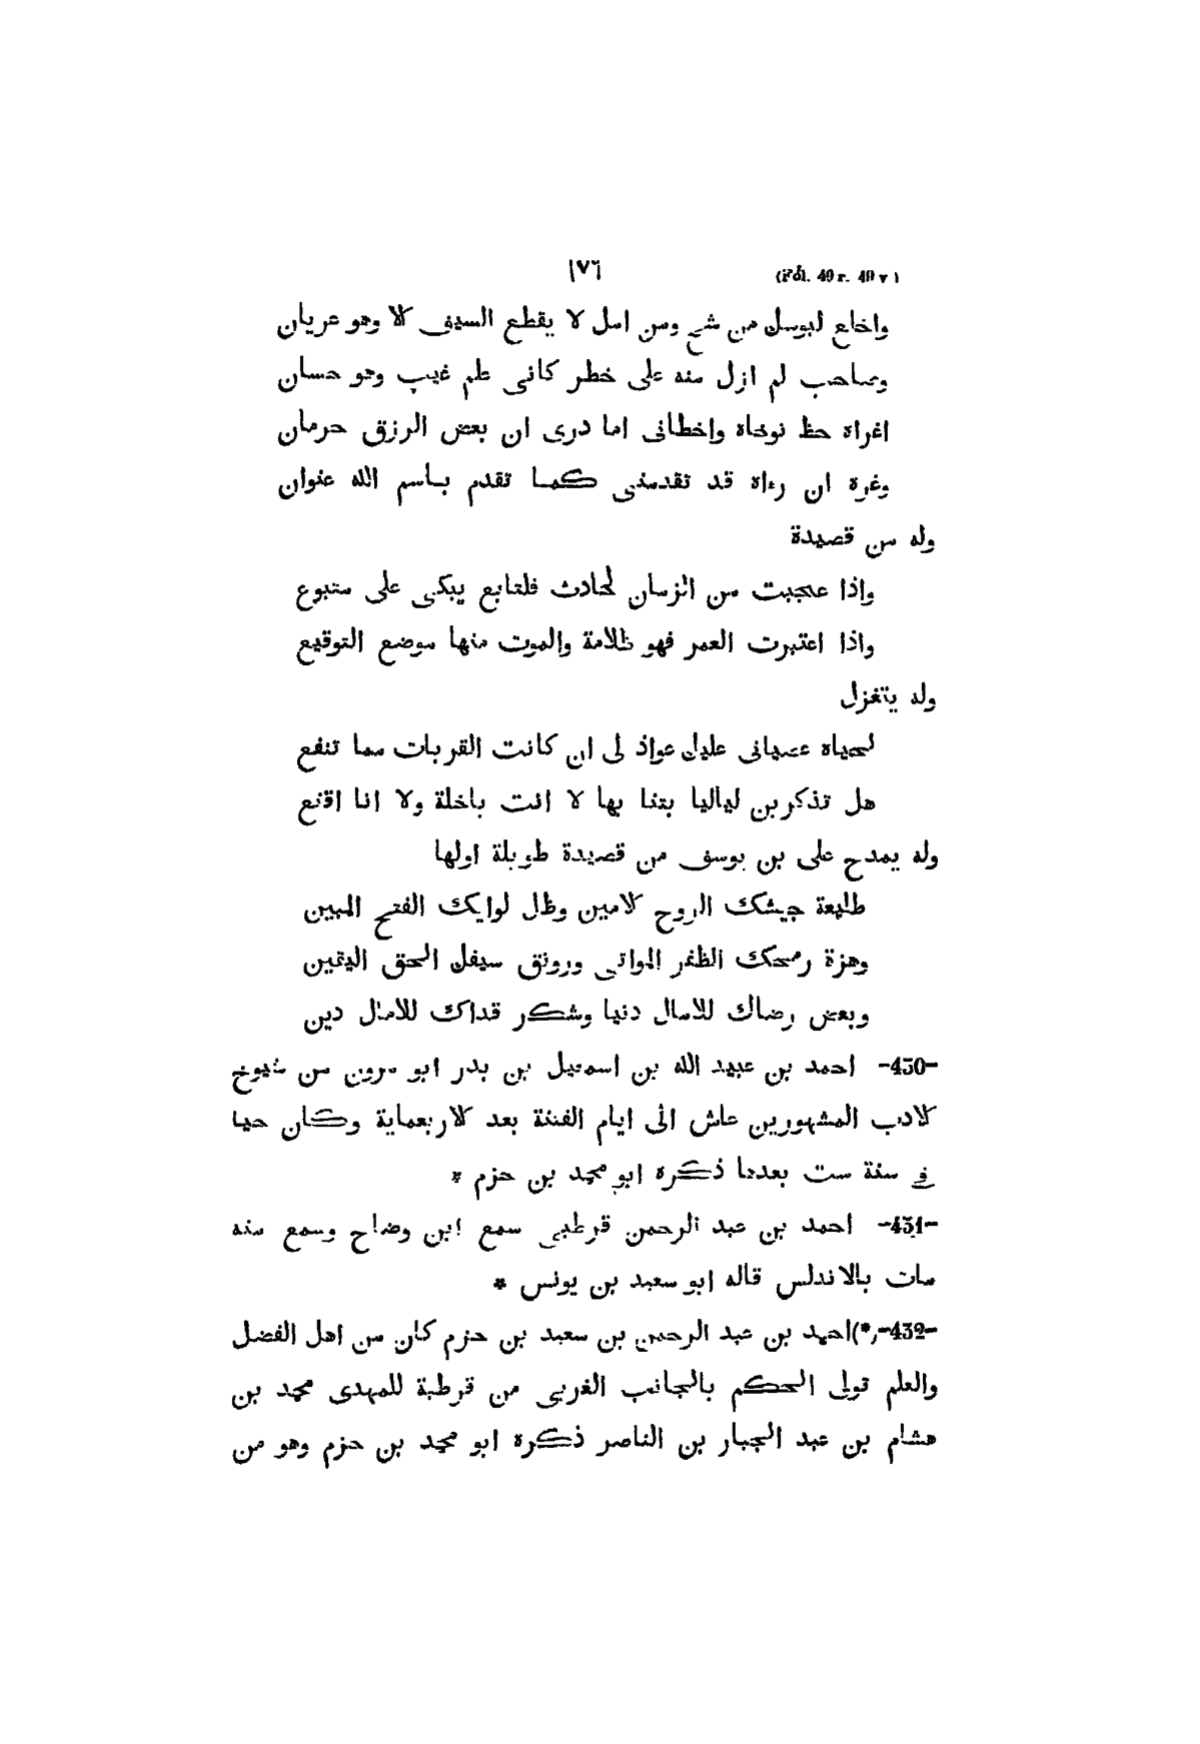 (Fol. 49 r. 49 v) ١٧٦
واخلع لبوسك من شح ومن امل لا يقطع السيف كلا وهو عريان
وصاحب لم ازل منه على خطر كانى علم غيب وهو حسان
اغراه حظ توخاه واخطانى اما درى ان بعض الرزق حرمان
وغره ان رءاه قد تقدمنى كما تقدم باسم الله عنوان
وله من قصيدة
واذا عجبت من الزمان لحادث فلتابع يبكى على متبوع
واذا اعتبرت العمر فهو ظلامة والموت منها موضع التوقيع
وله يتغزل
عصيانى عليك عواذلى ان كانت القربات مما تنفع
هل تذكرين لياليا بتنا بها لا انت باخلة ولا انا اقنع
وله يمدح على بن يوسف من قصيدة طويلة اولها
طليعة جيشك الروح كلامين وظل لوايك الفتح المبين
وهزة رمحك الظفر المواتى ورونق سيفك الحق اليقين
وبعض رضاك للامال دنيا وشكر للامال دين
-450- احمد بن عبيد الله بن اسمعيل بن بدر ابو مرون من شيوخ
كلادب المشهورين عاش الى ايام الفتنة بعد كلاربعماية وكان حيا
فى سنة ست بعدها ذكره ابو محمد بن حزم *
-451- احمد بن عبد الرحمن قرطبى سمع ابن وضاح وسمع منه
مات بالاندلس قاله ابو سعيد بن يونس *
-452-(*)احمد بن عبد الرحمن بن سعيد بن حزم كان من اهل الفضل
والعلم تولى الحكم بالجانب الغربى من قرطبة للمهدى محمد بن
هشام بن عبد الجبار بن الناصر ذكره ابو محمد بن حزم وهو من